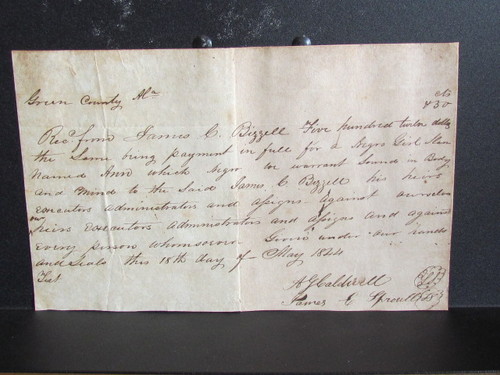 Green County Ala
Rec. from James C. Bizzell Five hundred twelve dolls
the Same being payment in full for a Negro Girl Slave
Named Ann which Negro we warrant Sound in Body
and Mind to the Said James C Bizzell his heirs
executors administrators and assigns against ourselves
our heirs executors administrators and assigns and against
every person whomsoever Given under our hands
and Seals this 18th day of May 1844
Test
A G Caldwell
James C Sproull